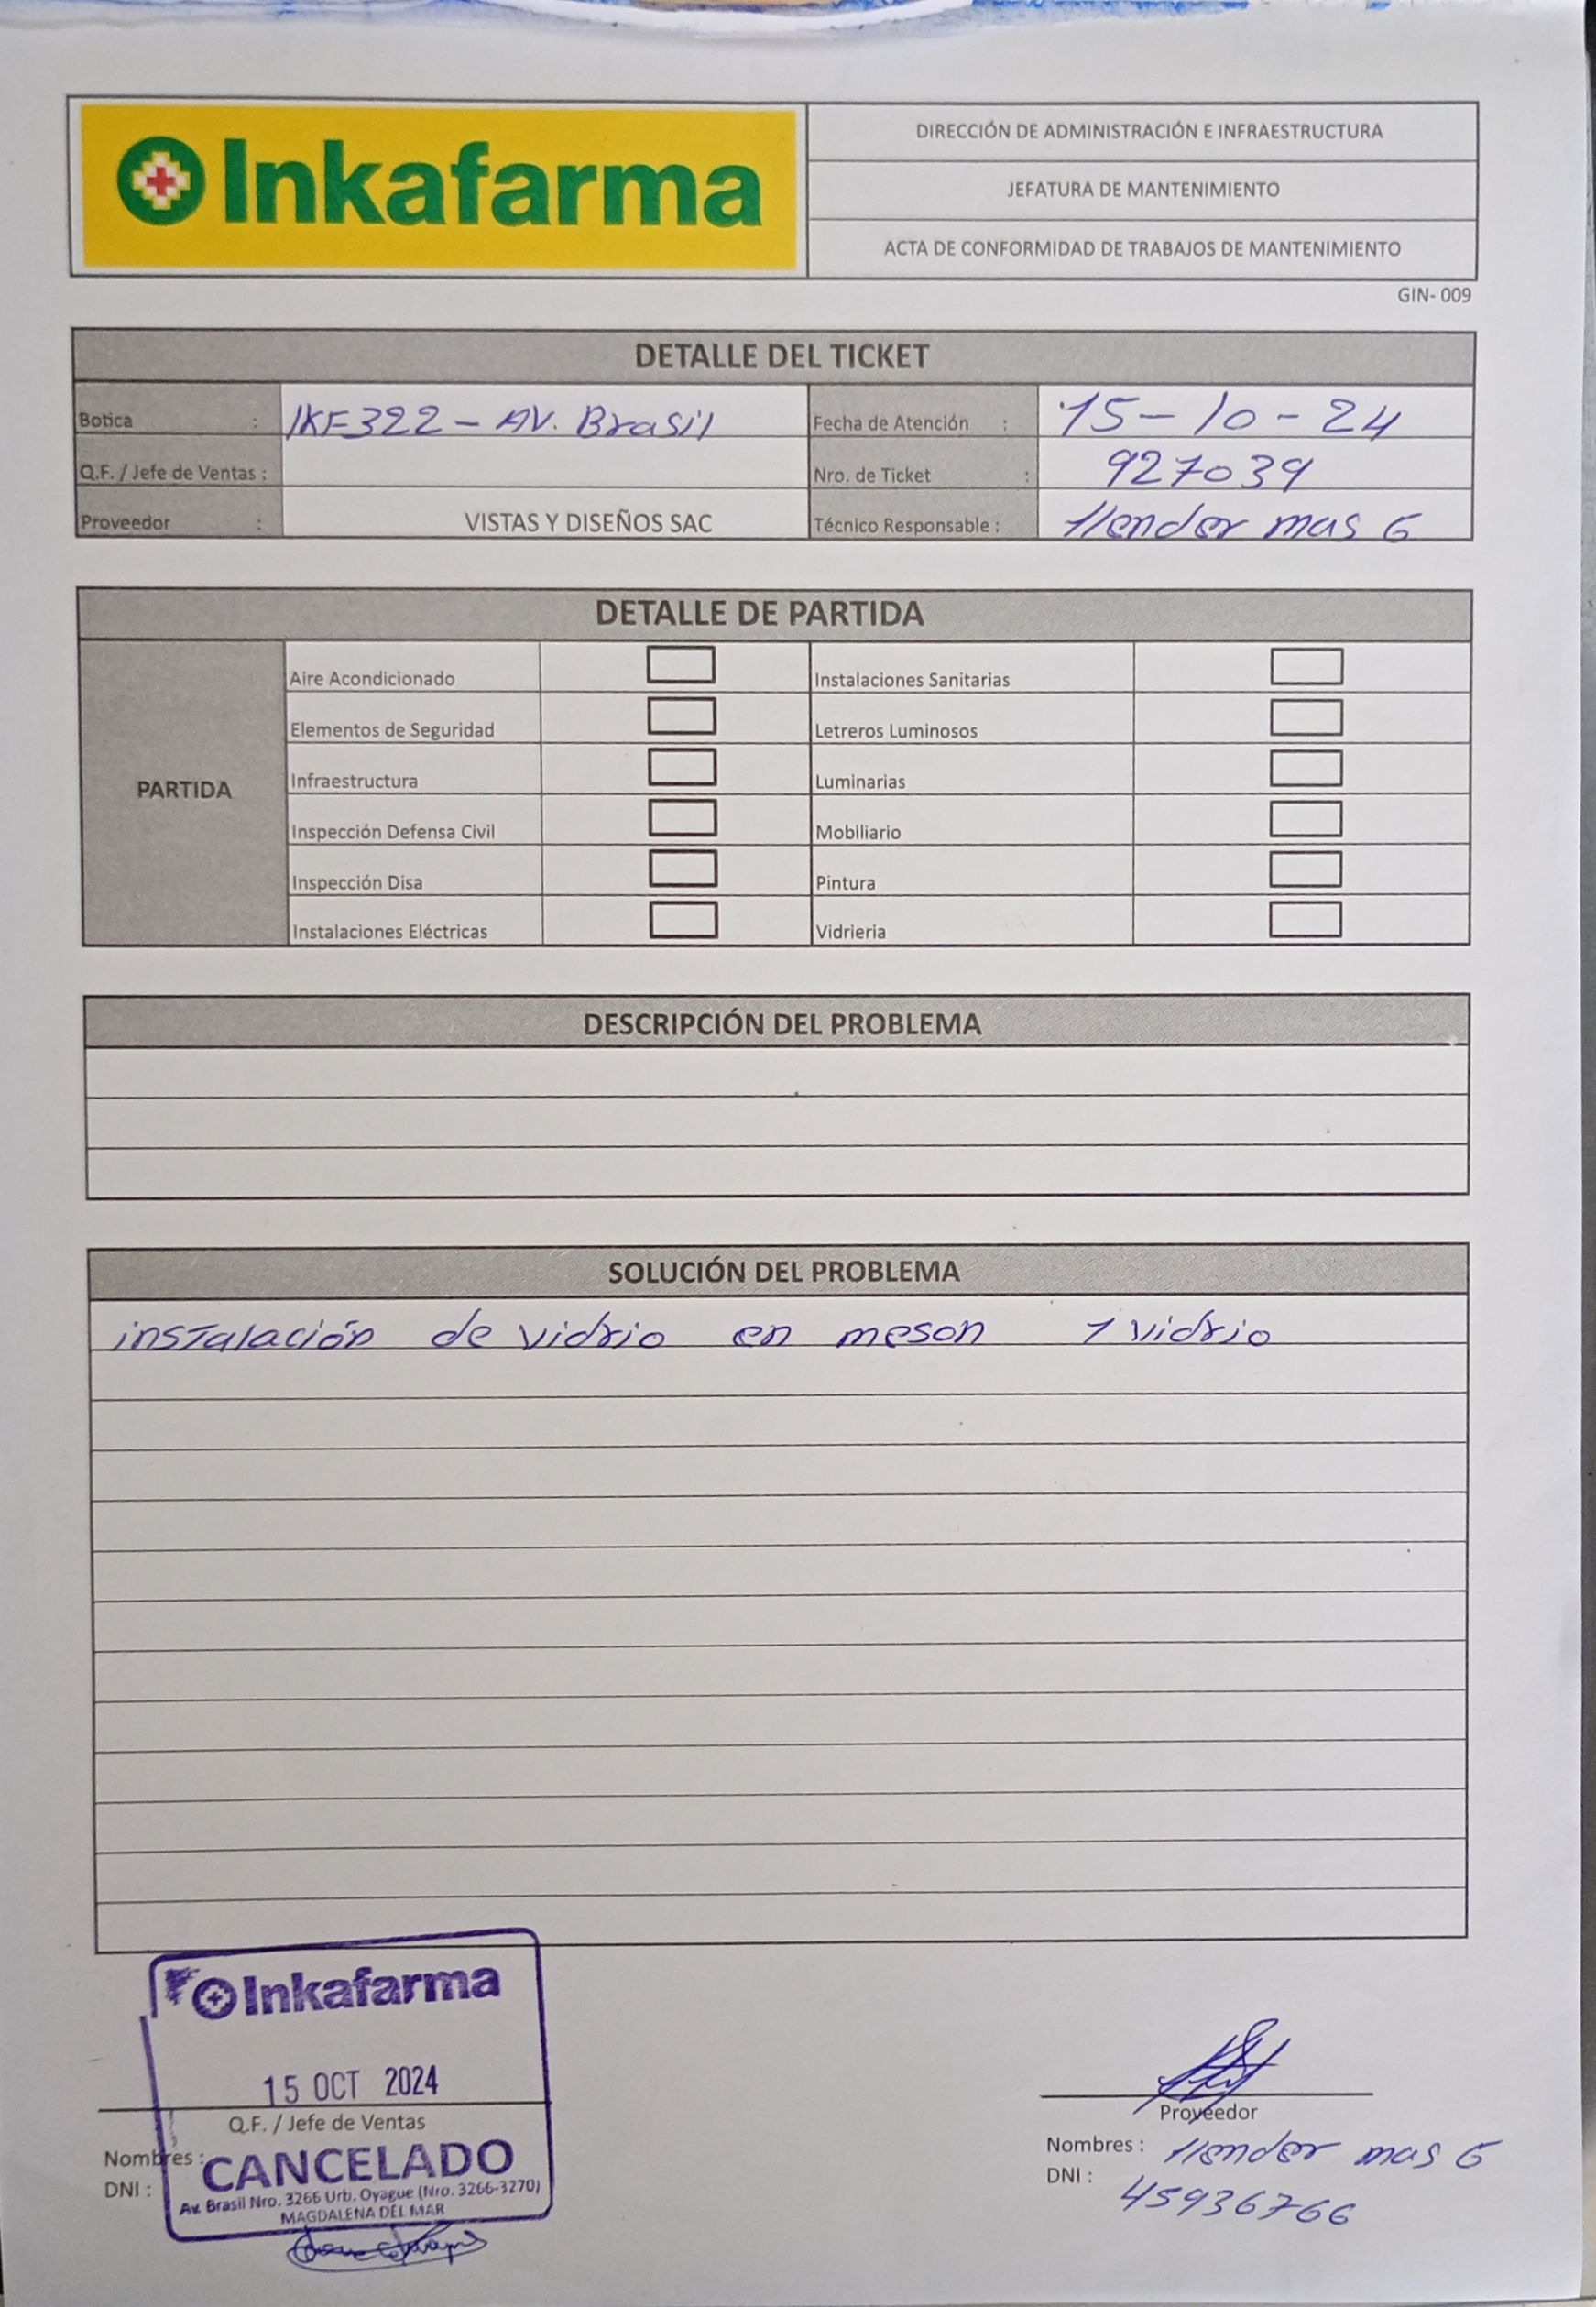 Inkafarma
DIRECCIÓN DE ADMINISTRACIÓN E INFRAESTRUCTURA
JEFATURA DE MANTENIMIENTO
ACTA DE CONFORMIDAD DE TRABAJOS DE MANTENIMIENTO
GIN- 009
DETALLE DEL TICKET
Botica : IKF322 - AV. Brasil Fecha de Atención : 15-10-24
Q.F. / Jefe de Ventas : Nro. de Ticket : 927039
Proveedor : VISTAS Y DISEÑOS SAC Técnico Responsable : Hender mas G
DETALLE DE PARTIDA
PARTIDA
Aire Acondicionado Instalaciones Sanitarias
Elementos de Seguridad Letreros Luminosos
Infraestructura Luminarias
Inspección Defensa Civil Mobiliario
Inspección Disa Pintura
Instalaciones Eléctricas Vidrieria
DESCRIPCIÓN DEL PROBLEMA
SOLUCIÓN DEL PROBLEMA
instalación de vidrio en meson 1 vidrio
Inkafarma
15 OCT 2024
Q.F. / Jefe de Ventas
Nombres :
DNI :
CANCELADO
Av. Brasil Nro. 3266 Urb. Oyague (Nro. 3266-3270)
MAGDALENA DEL MAR
Proveedor
Nombres : Hender mas G
DNI : 45936766